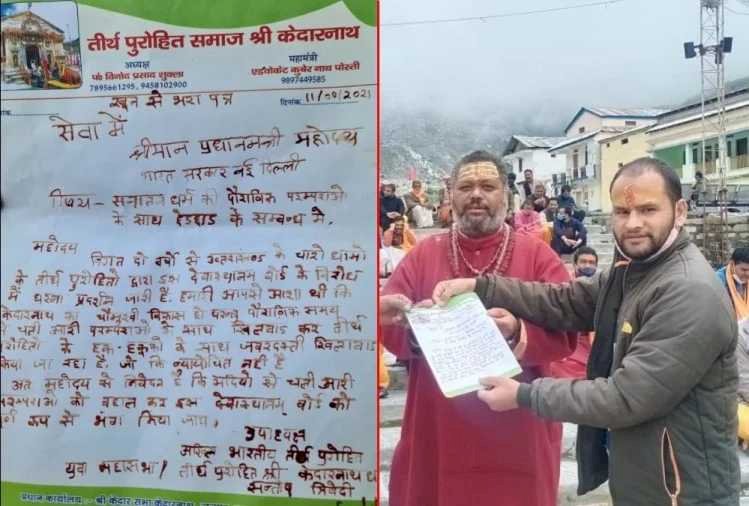 तीर्थ पुरोहित समाज श्री केदारनाथ
अध्यक्ष
पं० विनोद प्रसाद शुक्ला
7895661295, 9458102900
महामंत्री
एडवोकेट कुबेर नाथ पोस्ती
9897449585
खून से भरा पत्र
दिनांक 11/09/2021
सेवा में
श्रीमान प्रधानमन्त्री महोदय
भारत सरकार नई दिल्ली
विषय - सनातन धर्म की पौराणिक परम्पराओं
के साथ छेड़छाड़ के सम्बन्ध में.
महोदय
विगत दो वर्षो से उत्तराखण्ड के चारो धामो
के तीर्थ पुरोहितो द्वारा इस देवास्थानम बोर्ड के विरोध
में धरना प्रदर्शन जारी है. हमारी आपसे आशा थी कि
केदारनाथ का चौमुखी विकास हो परन्तु पौराणिक समय
से चली आरी परम्पराओ के साथ खिलवाड कर तीर्थ
पुरोहितो के हक-हकूको के साथ जबरदस्ती खिलवाड
किया जा रहा है, जो कि न्यायोचित नही है
अतः महोदय से निवेदन है कि सदियो से चली आरी
परम्पराओ को बहाल कर इस देवास्थानम् बोर्ड को
पूर्ण रूप से भंग किया जाय,
उपाध्यक्ष
अखिल भारतीय तीर्थ पुरोहित
युवा महासभा / तीर्थ पुरोहित श्री केदारनाथ
सन्तोष त्रिवेदी
प्रधान कार्यालय :- श्री केदार सभा केदारनाथ,